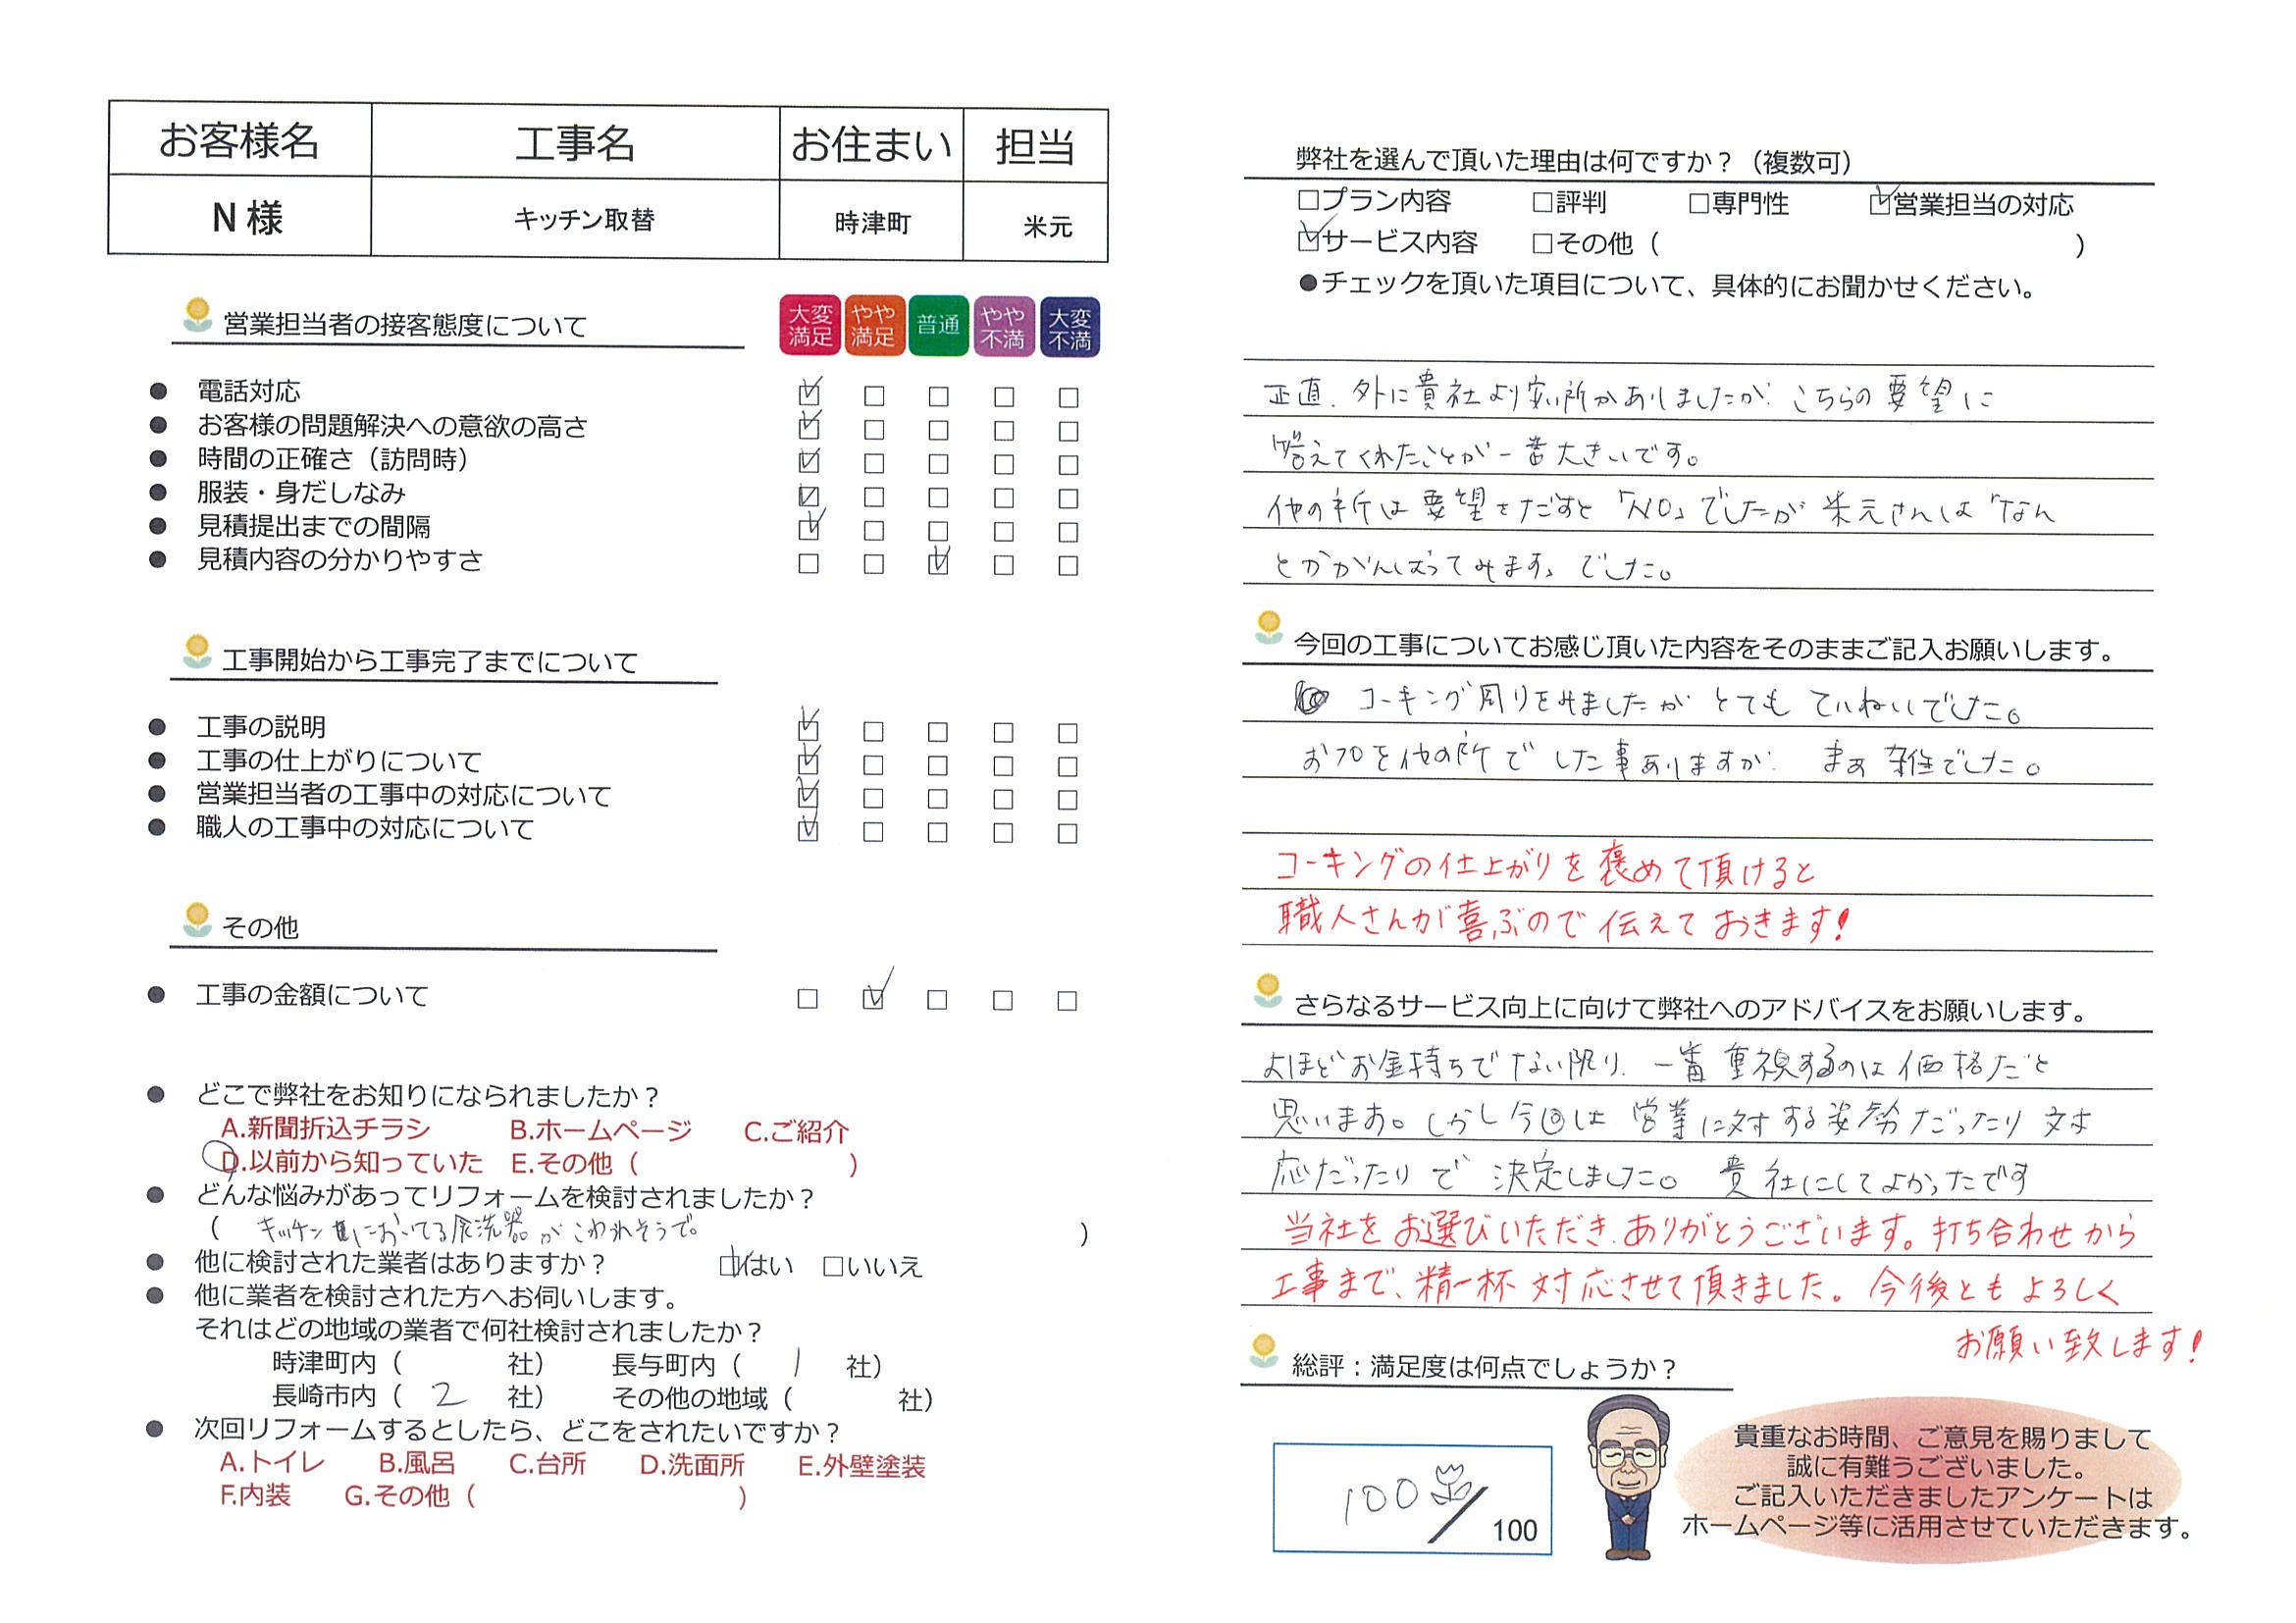 お客様名 工事名 お住まい 担当
N 様 キッチン取替 時津町 米元
営業担当者の接客態度について
大変満足 やや満足 普通 やや不満 大変不満
● 電話対応 ☑ □ □ □ □
● お客様の問題解決への意欲の高さ ☑ □ □ □ □
● 時間の正確さ（訪問時） ☑ □ □ □ □
● 服装・身だしなみ ☑ □ □ □ □
● 見積提出までの間隔 ☑ □ □ □ □
● 見積内容の分かりやすさ □ □ ☑ □ □
工事開始から工事完了までについて
● 工事の説明 ☑ □ □ □ □
● 工事の仕上がりについて ☑ □ □ □ □
● 営業担当者の工事中の対応について ☑ □ □ □ □
● 職人の工事中の対応について ☑ □ □ □ □
その他
● 工事の金額について □ ☑ □ □ □
● どこで弊社をお知りになられましたか？
A.新聞折込チラシ B.ホームページ C.ご紹介
D.以前から知っていた E.その他（ ）
● どんな悩みがあってリフォームを検討されましたか？
（ キッチン においてる食洗器がこわれそうで。 ）
● 他に検討された業者はありますか？ ☑はい □いいえ
● 他に業者を検討された方へお伺いします。
それはどの地域の業者で何社検討されましたか？
時津町内（ 社） 長与町内（ 1 社）
長崎市内（ 2 社） その他の地域（ 社）
● 次回リフォームするとしたら、どこをされたいですか？
A.トイレ B.風呂 C.台所 D.洗面所 E.外壁塗装
F.内装 G.その他（ ）
弊社を選んで頂いた理由は何ですか？（複数可）
□プラン内容 □評判 □専門性 ☑営業担当の対応
☑サービス内容 □その他（ ）
●チェックを頂いた項目について、具体的にお聞かせください。
正直、外に貴社より安い所がありましたが、こちらの要望に
答えてくれたことが一番大きいです。
他の所は要望をだすと「NO」でしたが米元さんは「なん
とかがんばってみます」でした。
今回の工事についてお感じ頂いた内容をそのままご記入お願いします。
コーキング周りをみましたが とても ていねいでした。
お風呂を他の所で した事ありますが、 まあ 雑でした。
コーキングの仕上がりを褒めて頂けると
職人さんが喜ぶので伝えておきます！
さらなるサービス向上に向けて弊社へのアドバイスをお願いします。
よほどお金持ちでない限り、一番重視するのは価格だと
思います。しかし今回は 営業に対する姿勢だったり 対
応だったりで 決定しました。 貴社にしてよかったです
当社をお選びいただき、ありがとうございます。打ち合わせから
工事まで、精一杯 対応させて頂きました。今後ともよろしく
お願い致します！
総評：満足度は何点でしょうか？
100 / 100
貴重なお時間、ご意見を賜りまして
誠に有難うございました。
ご記入いただきましたアンケートは
ホームページ等に活用させていただきます。